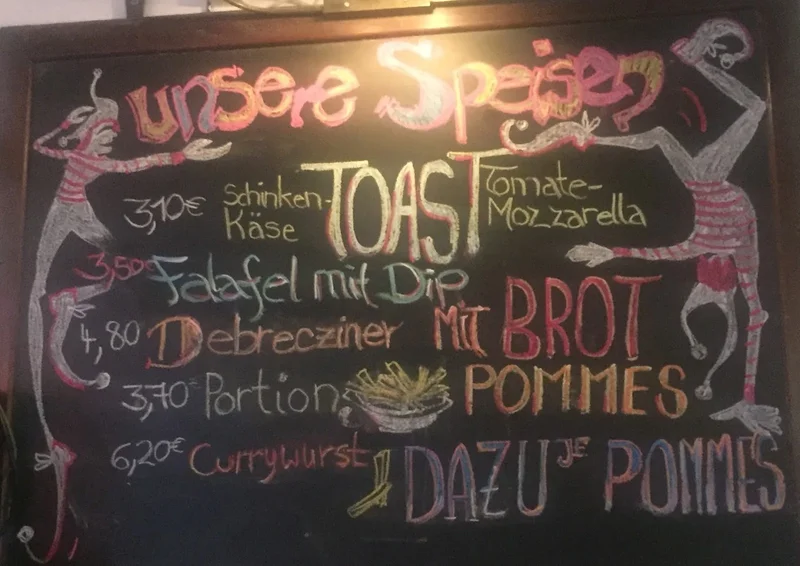 unsere Speisen
3,10€ Schinken-Käse TOAST Tomate-Mozzarella
3,50€ Falafel mit Dip
4,80 Debrecziner Mit BROT
3,70€ Portion POMMES
6,20€ Currywurst DAZU JE POMMES